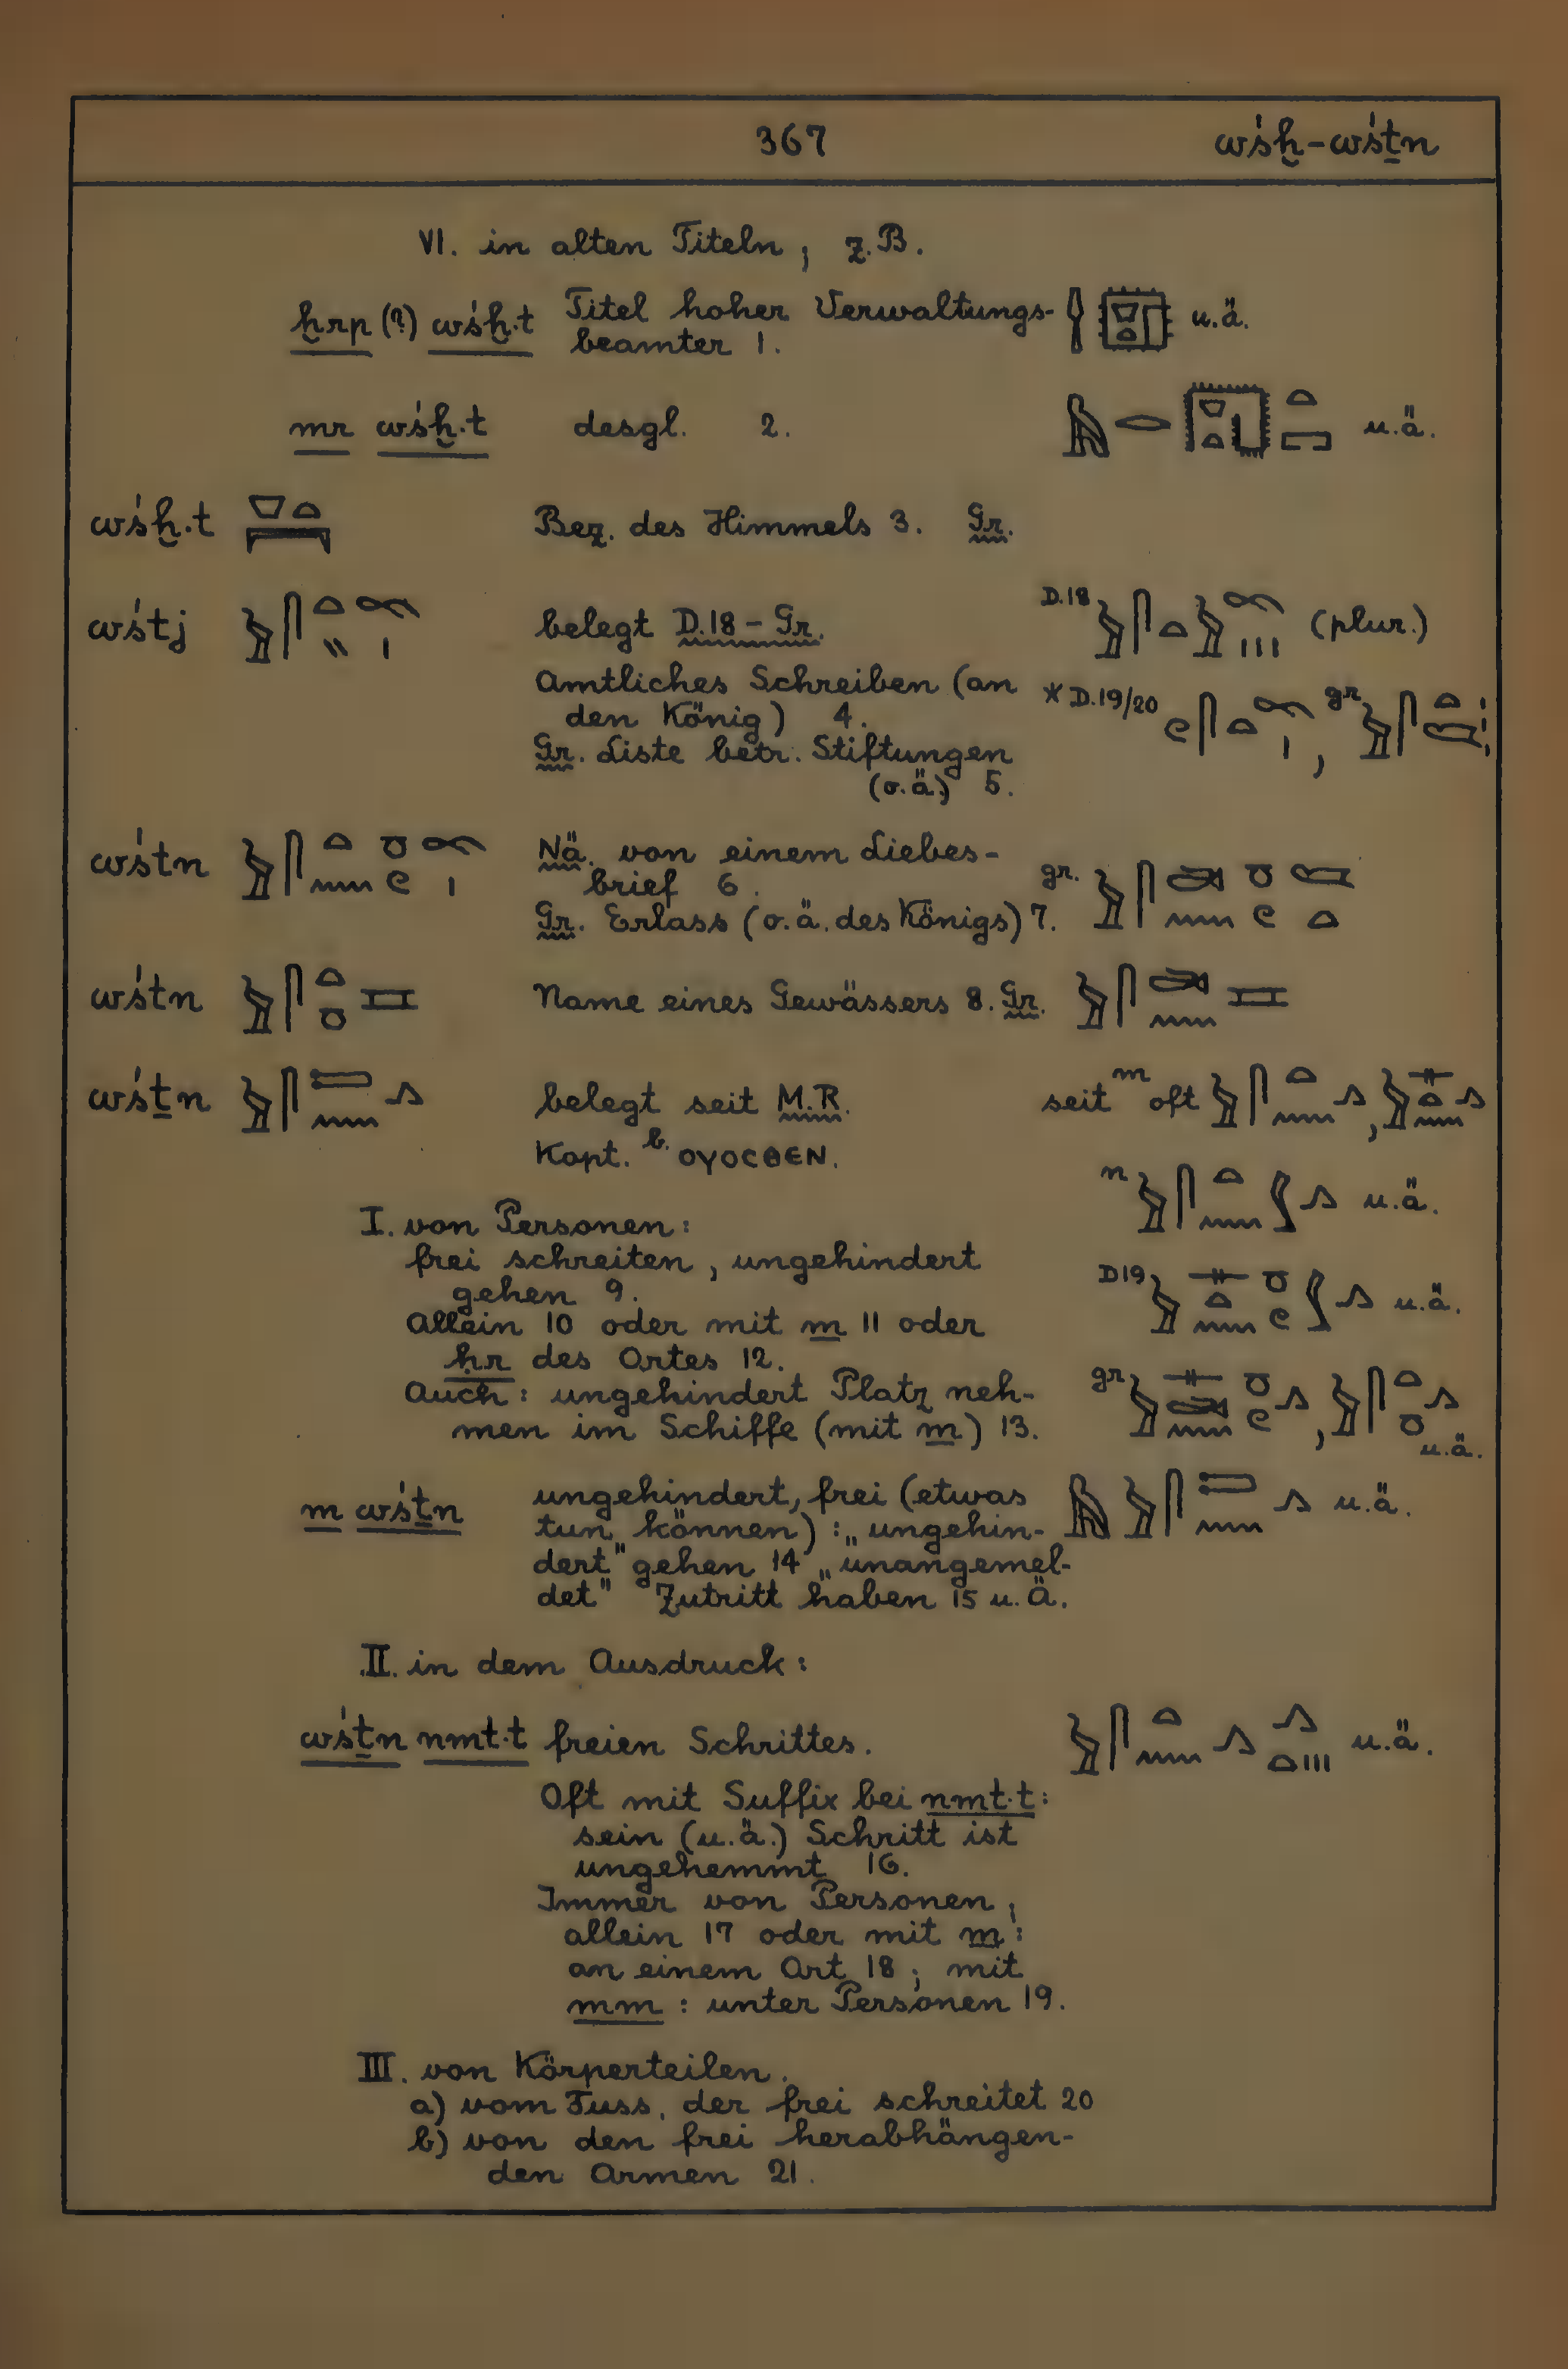 367 wśḫ-wśṯn
VI. in alten Titeln, z.B.
ḫrp (?) wśḫ.t Titel hoher Verwaltungs- u.ä.
beamter 1.
mr wśḫ.t desgl. 2. u.ä.
wśḫ.t Bez. des Himmels 3. Gr.
wśtj belegt D.18 – Gr. D.18 (plur.)
Amtliches Schreiben (an
den König) 4. * D.19/20 , gr
Gr. Liste betr. Stiftungen
(o.ä.) 5.
wśtn Nä. von einem Liebes-
brief 6. gr.
Gr. Erlass (o.ä. des Königs) 7.
wśtn Name eines Gewässers 8. Gr.
wśṯn belegt seit M.R. seit m oft ,
Kopt. b. ⲟⲩⲟⲥⲑⲉⲛ.
n u.ä.
I. von Personen:
frei schreiten, ungehindert
gehen 9. D19 u.ä.
Allein 10 oder mit m 11 oder
ḥr des Ortes 12.
Auch: ungehindert Platz neh- gr ,
men im Schiffe (mit m) 13. u.ä.
m wśṯn ungehindert, frei (etwas u.ä.
tun können): „ungehin-
dert" gehen 14 „unangemel-
det" Zutritt haben 15 u. Ä.
II. in dem Ausdruck:
wśṯn nmt.t freien Schrittes. u.ä.
Oft mit Suffix bei nmt.t:
sein (u.ä.) Schritt ist
ungehemmt 16.
Immer von Personen,
allein 17 oder mit m:
an einem Ort 18; mit
mm: unter Personen 19.
III. von Körperteilen.
a) vom Fuss, der frei schreitet 20
b) von den frei herabhängen-
den Armen 21.